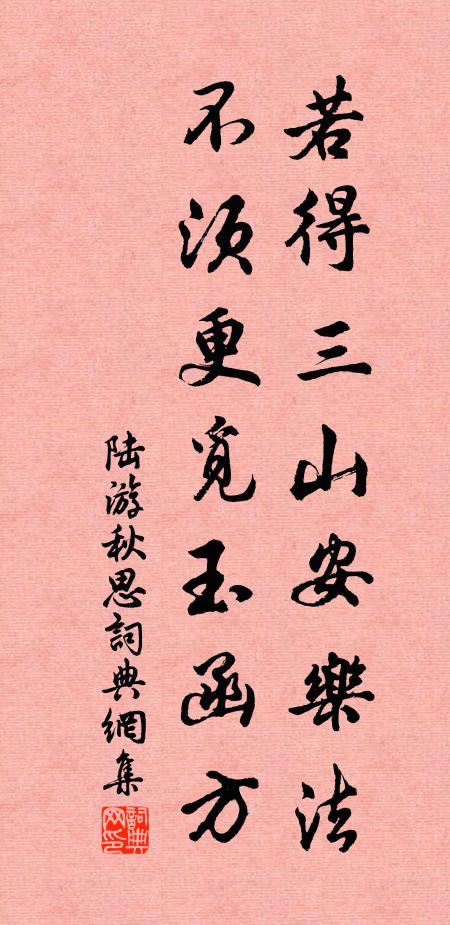 若得三山安樂法
不須更覓玉函方
陆游秋思詞典網集
詞典網印